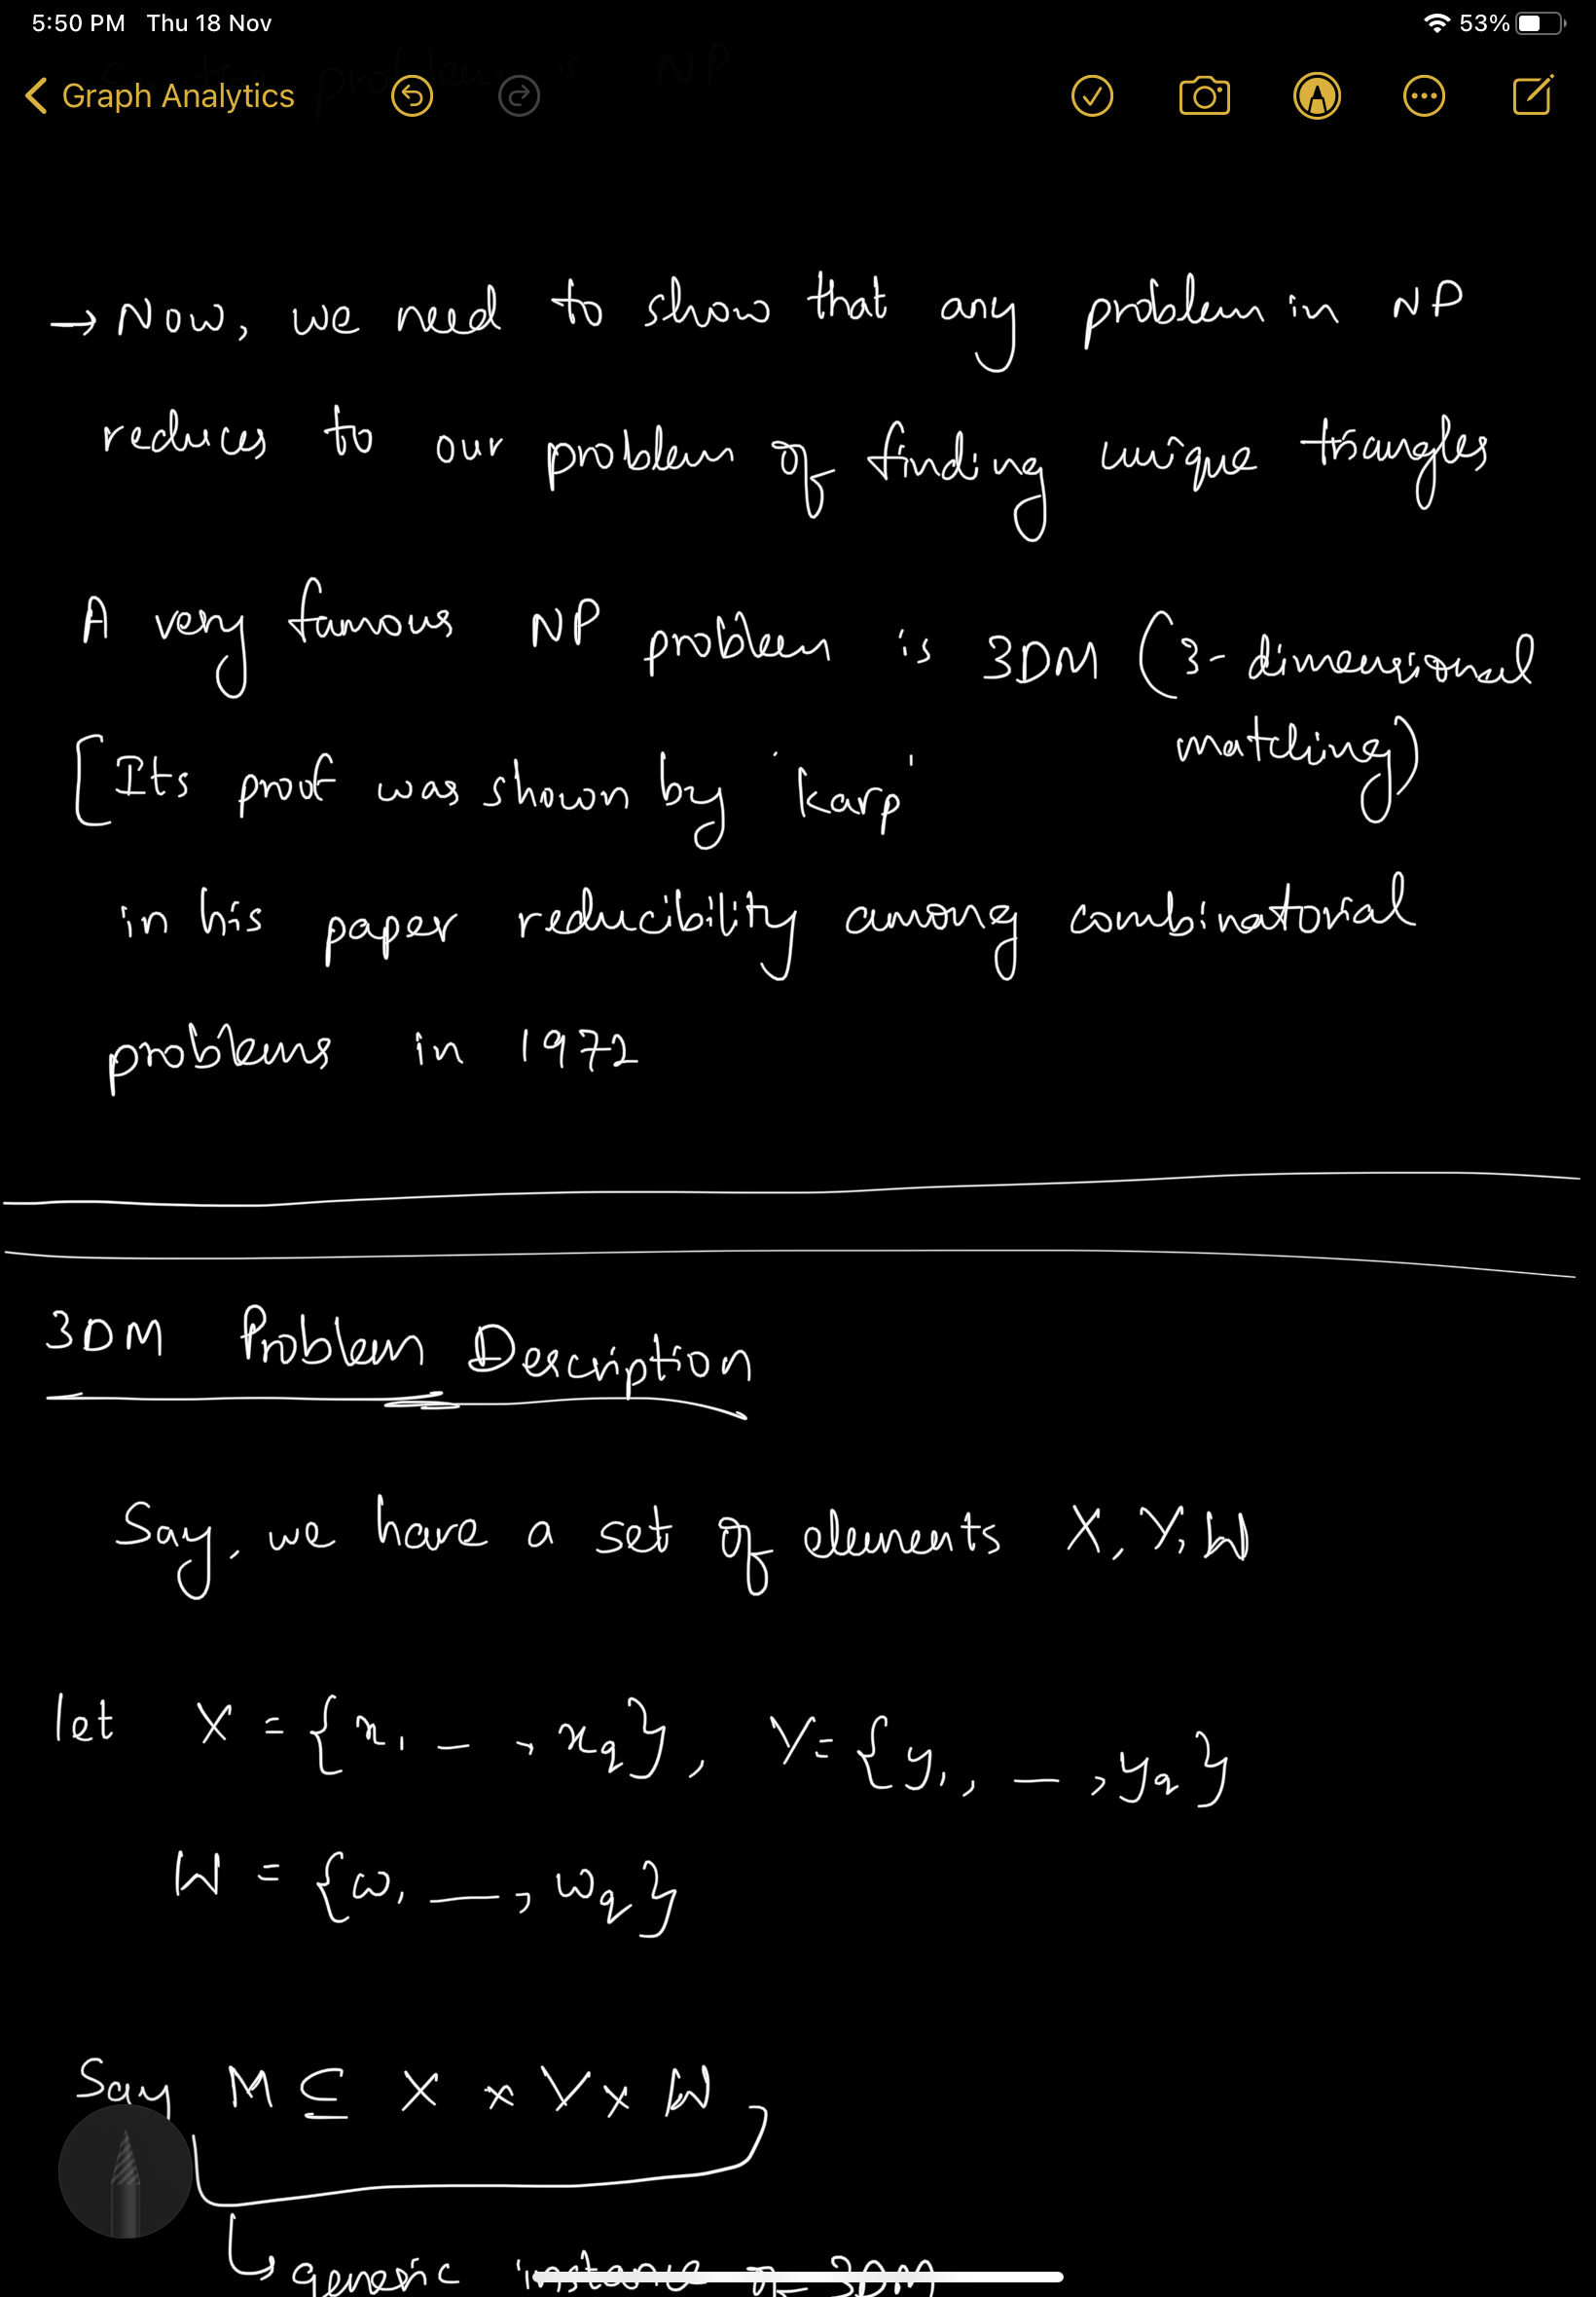 5:50 PM Thu 18 Nov 53%
problem is NP
Graph Analytics
→ Now, we need to show that any problem in NP
reduces to our problem of finding unique triangles
A very famous NP problem is 3DM (3-dimensional
matching)
[Its proof was shown by 'Karp'
in his paper reducibility among combinatorial
problems in 1972
3DM Problem Description
Say, we have a set of elements X, Y, W
let X = {x1 — , xq}, Y = {y1, — , yq}
W = {w1 — , wq}
Say M ⊆ X x Y x W,
↳ generic instance of 3DM